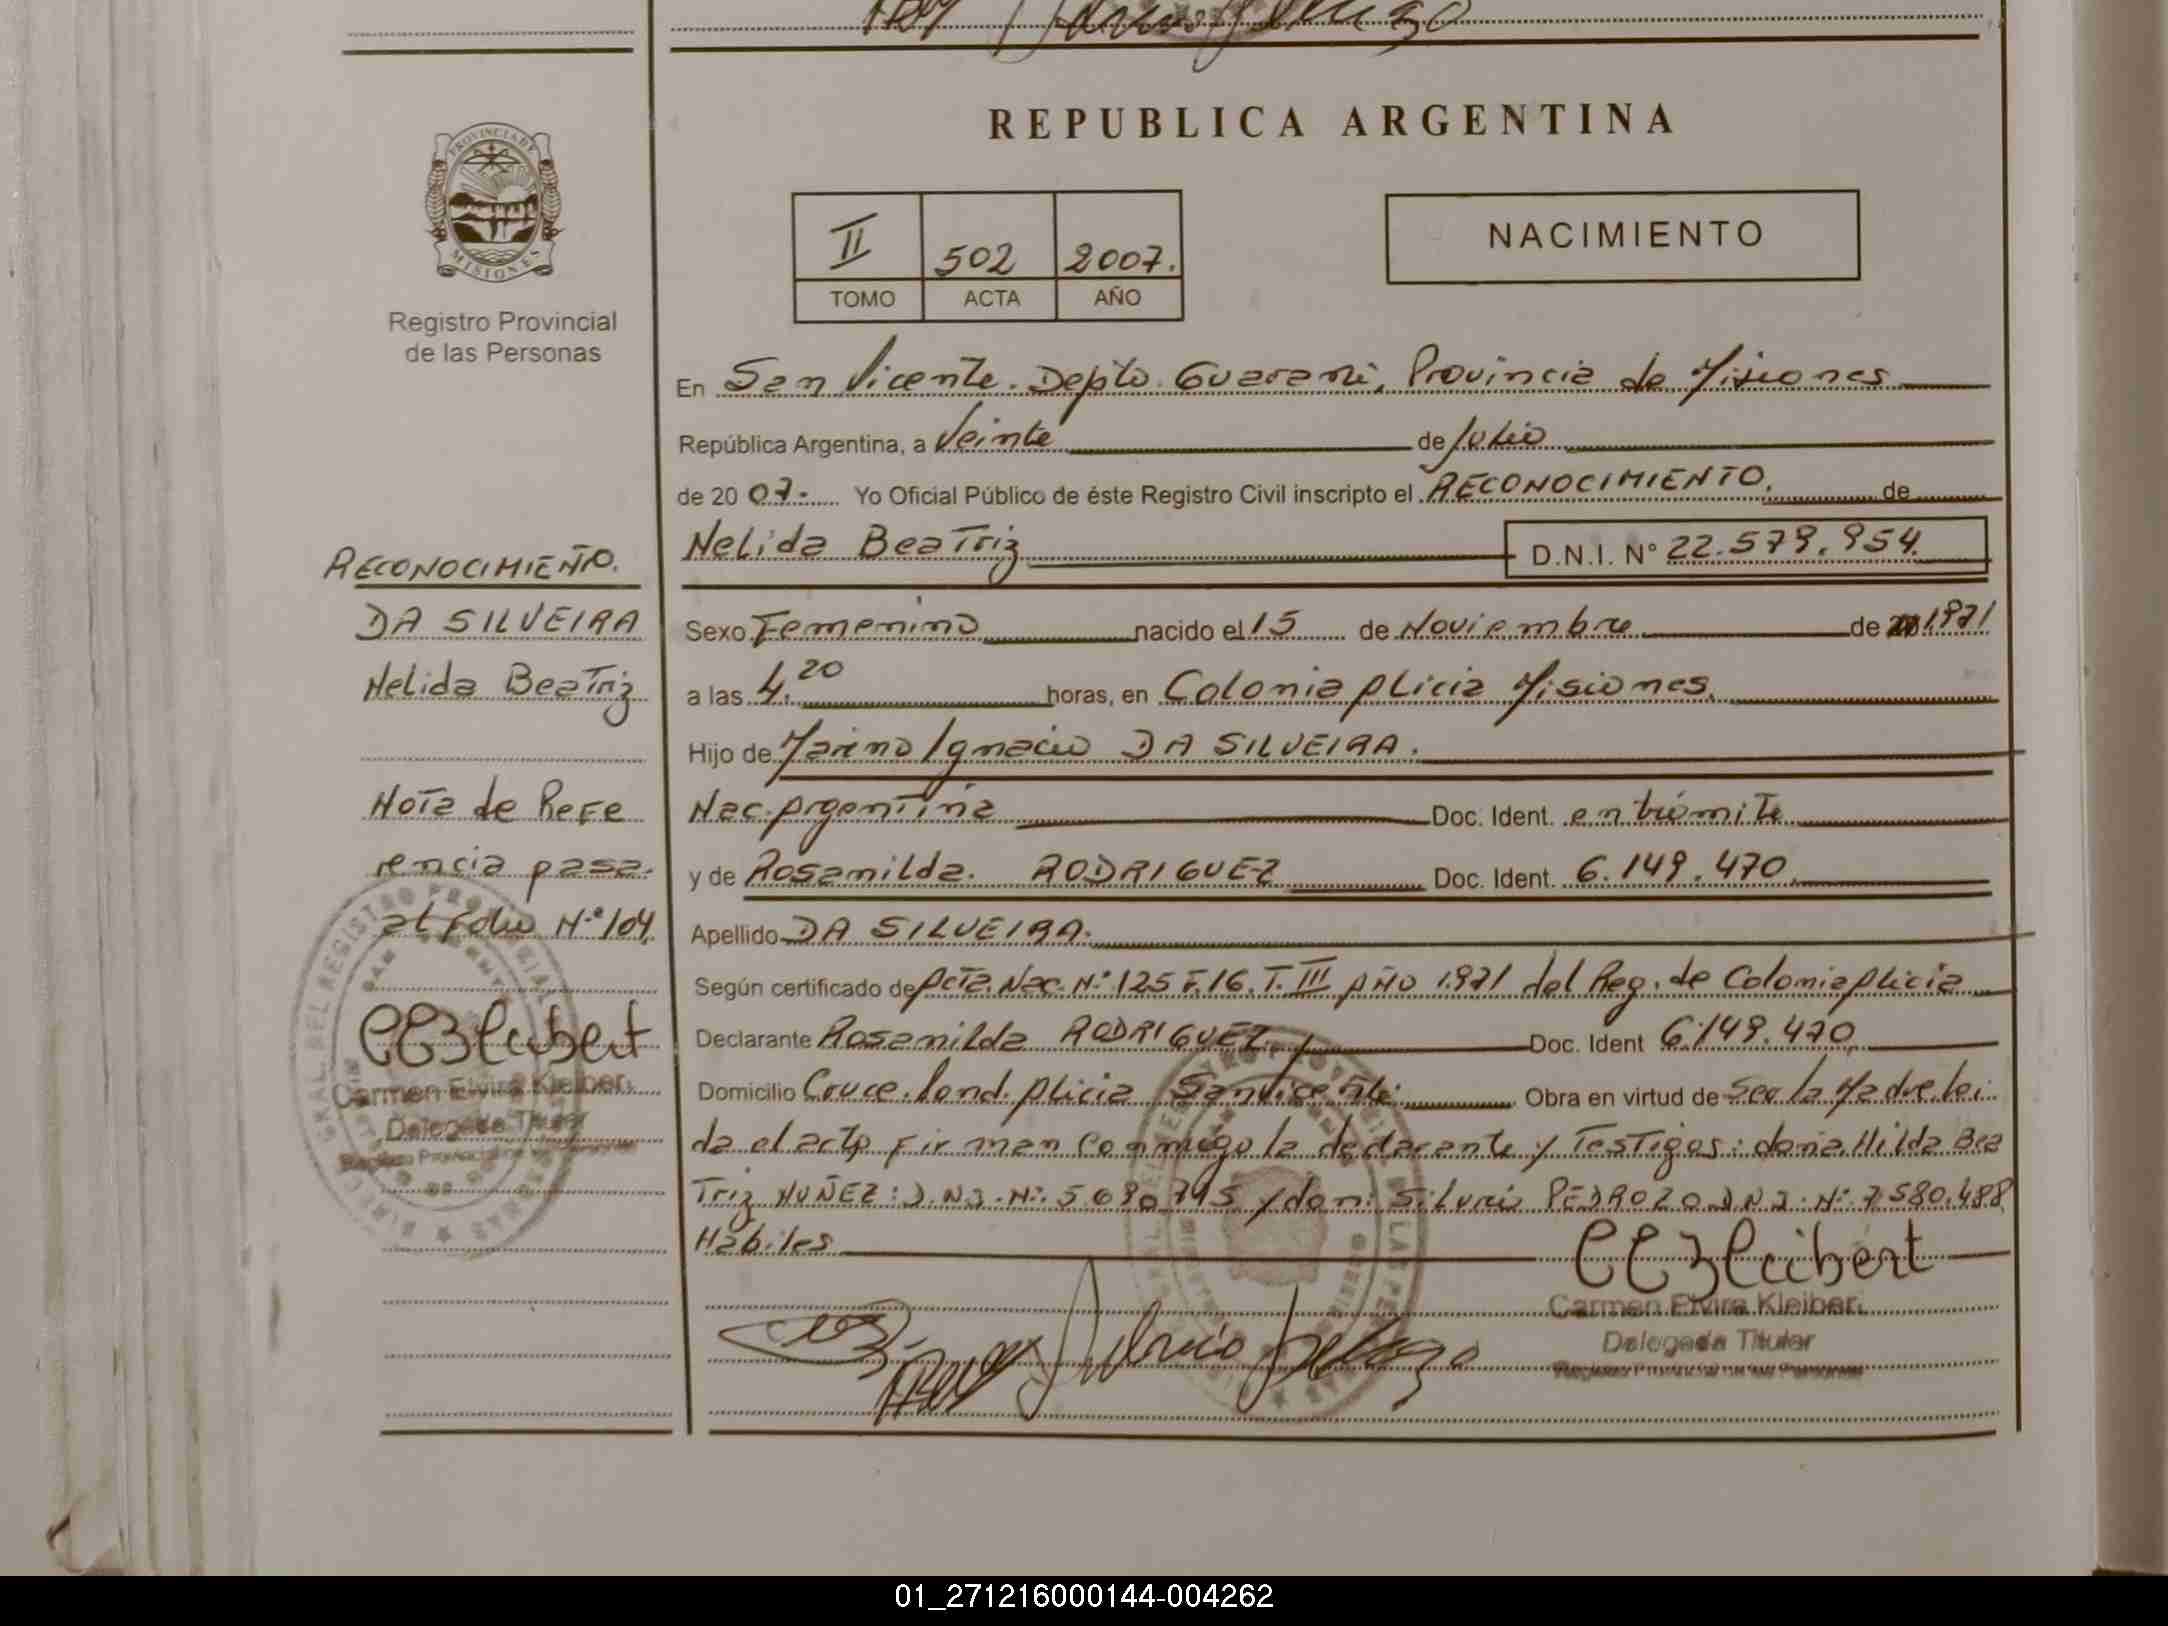 REPUBLICA ARGENTINA
PROVINCIA DE
MISIONES
Registro Provincial
de las Personas
II 502 2007.
TOMO ACTA AÑO
NACIMIENTO
En San Vicente. Depto. Guarani, Provincia de Misiones
República Argentina, a Veinte de Julio
de 20 07. Yo Oficial Público de éste Registro Civil inscripto el RECONOCIMIENTO. de
Nelida Beatriz D.N.I. N° 22.579.954.
Sexo Femenino nacido el 15 de Noviembre de 1.971
a las 4.20 horas, en Colonia Alicia Misiones.
Hijo de Marino Ignacio DA SILVEIRA.
Nac. Argentina Doc. Ident. en trámite
y de Rosanilda. RODRIGUEZ Doc. Ident. 6.149.470.
Apellido DA SILVEIRA.
Según certificado de Acta. Nac. N° 125 F. 16. T. III AÑO 1.971 del Reg. de Colonia Alicia
Declarante Rosanilda RODRIGUEZ Doc. Ident 6.149.470
Domicilio Cruce. Lond. Alicia San Vicente Obra en virtud de Ser la Madre. lei
da el acto, firman conmigo la declarante y Testigos: doña. Hilda Bea
Triz NUÑEZ: D.N.I. N°. 5.680.745 y don: Silvrio PEDROZO D.N.I. N° 7.580.488
Habiles
Carmen Elvira Kleibert
Delegada Titular
Registro Provincial de las Personas
RECONOCIMIENTO.
DA SILVEIRA
Nelida Beatriz
Nota de Refe
rencia pasa.
al folio N° 104.
Carmen Elvira Kleibert
Delegada Titular
Registro Provincial de las Personas
01_271216000144-004262